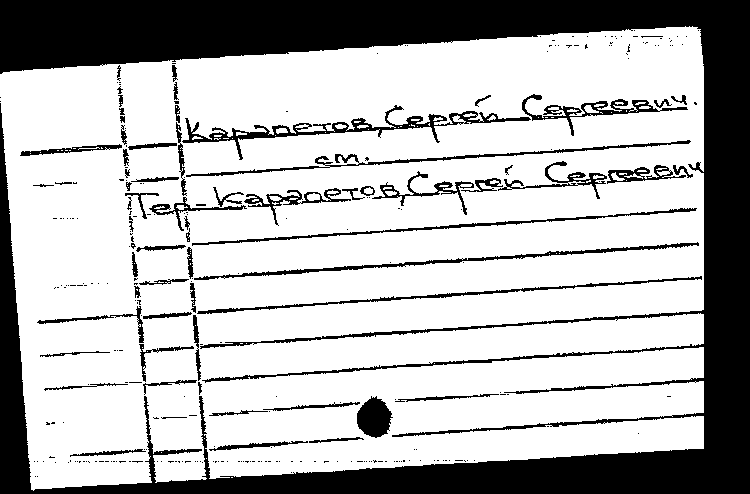 Карапетов, Сергей Сергеевич.
см.
Тер-Карапетов, Сергей Сергеевич